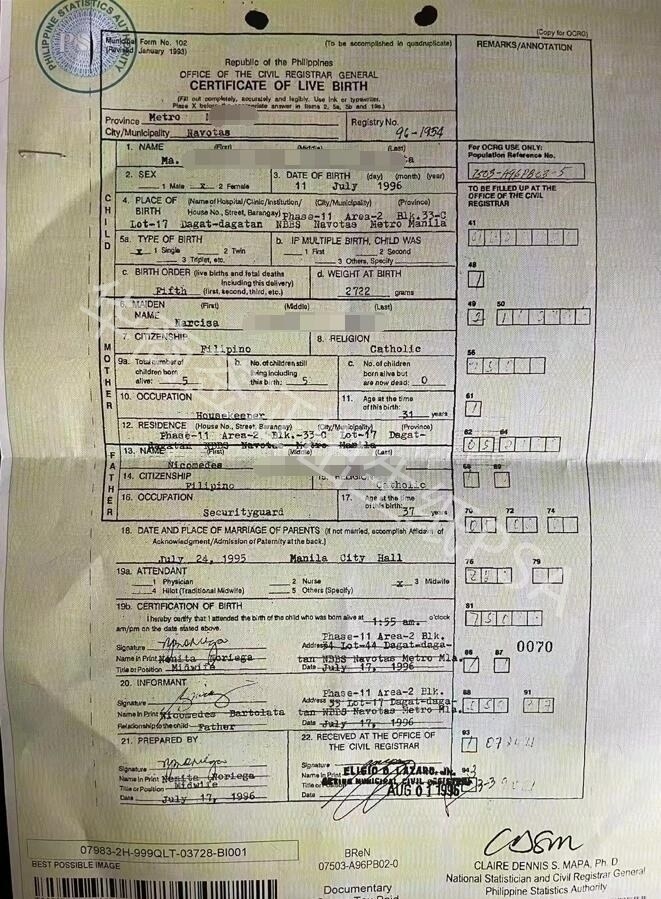 PHILIPPINE STATISTICS AUTHORITY
(Copy for OCRG)
Municipal Form No. 102
(Revised January 1993)
(To be accomplished in quadruplicate)
REMARKS/ANNOTATION
Republic of the Philippines
OFFICE OF THE CIVIL REGISTRAR GENERAL
CERTIFICATE OF LIVE BIRTH
(Fill out completely, accurately and legibly. Use ink or typewriter.
Place X before the appropriate answer in Items 2, 5a, 5b and 19a.)
Province Metro
Registry No.
City/Municipality Navotas
96-1954
For OCRG USE ONLY:
Population Reference No.
7503-A96PB02-5
TO BE FILLED UP AT THE
OFFICE OF THE CIVIL
REGISTRAR
CHILD
1. NAME (First) (Middle) (Last)
Ma.
2. SEX
1 Male x 2 Female
3. DATE OF BIRTH (day) (month) (year)
11 July 1996
4. PLACE OF BIRTH
(Name of Hospital/Clinic/Institution/ (City/Municipality) (Province)
House No., Street, Barangay)
Phase-11 Area-2 Blk.33-C
Lot-17 Dagat-dagatan NBBS Navotas Metro Manila
5a. TYPE OF BIRTH
x 1 Single 2 Twin
3 Triplet, etc.
b. IF MULTIPLE BIRTH, CHILD WAS
1 First 2 Second
3 Others, Specify
c. BIRTH ORDER (live births and fetal deaths
including this delivery)
Fifth (first, second, third, etc.)
d. WEIGHT AT BIRTH
2722 grams
MOTHER
6. MAIDEN NAME (First) (Middle) (Last)
Narcisa
7. CITIZENSHIP
Filipino
8. RELIGION
Catholic
9a. Total number of children born alive: 5
b. No. of children still living including this birth: 5
c. No. of children born alive but are now dead: 0
10. OCCUPATION
Housekeeper
11. Age at the time of this birth: 31 years
12. RESIDENCE (House No., Street, Barangay) (City/Municipality) (Province)
Phase-11 Area-2 Blk.-33-C Lot-17 Dagat-
dagatan NBBS Navotas Metro Manila
FATHER
13. NAME (First) (Middle) (Last)
Nicomedes
14. CITIZENSHIP
Filipino
15. RELIGION
Catholic
16. OCCUPATION
Securityguard
17. Age at the time of this birth: 37 years
18. DATE AND PLACE OF MARRIAGE OF PARENTS (If not married, accomplish Affidavit of
Acknowledgment/Admission of Paternity at the back.)
July 24, 1995 Manila City Hall
19a. ATTENDANT
1 Physician 2 Nurse x 3 Midwife
4 Hilot (Traditional Midwife) 5 Others (Specify)
19b. CERTIFICATION OF BIRTH
I hereby certify that I attended the birth of the child who was born alive at 1:55 am. o'clock
am/pm on the date stated above.
Signature
Name in Print Nenita Noriega
Title or Position Midwife
Phase-11 Area-2 Blk.
Address 34 Lot-44 Dagat-daga-
tan NBBS Navotas Metro Mla.
Date July 17, 1996
20. INFORMANT
Signature
Name in Print Nicomedes Bartolata
Relationship to the child Father
Phase-11 Area-2 Blk.
Address 33 Lot-17 Dagat-daga-
tan NBBS Navotas Metro Mla.
Date July 17, 1996
21. PREPARED BY
Signature
Name in Print Nenita Noriega
Title or Position Midwife
Date July 17, 1996
22. RECEIVED AT THE OFFICE OF
THE CIVIL REGISTRAR
Signature
Name in Print ELIGIO D. LAZARO, Jr.
Title or Position ACTING MUNICIPAL CIVIL REGISTRAR
Date AUG 01 1996
41
48
49 50
56
61
62 64
68 69
70 72 74
76 79
81
0070
86 87
88 91
93
94
07983-2H-999QLT-03728-BI001
BEST POSSIBLE IMAGE
BReN
07503-A96PB02-0
Documentary
CLAIRE DENNIS S. MAPA, Ph. D
National Statistician and Civil Registrar General
Philippine Statistics Authority
PSA